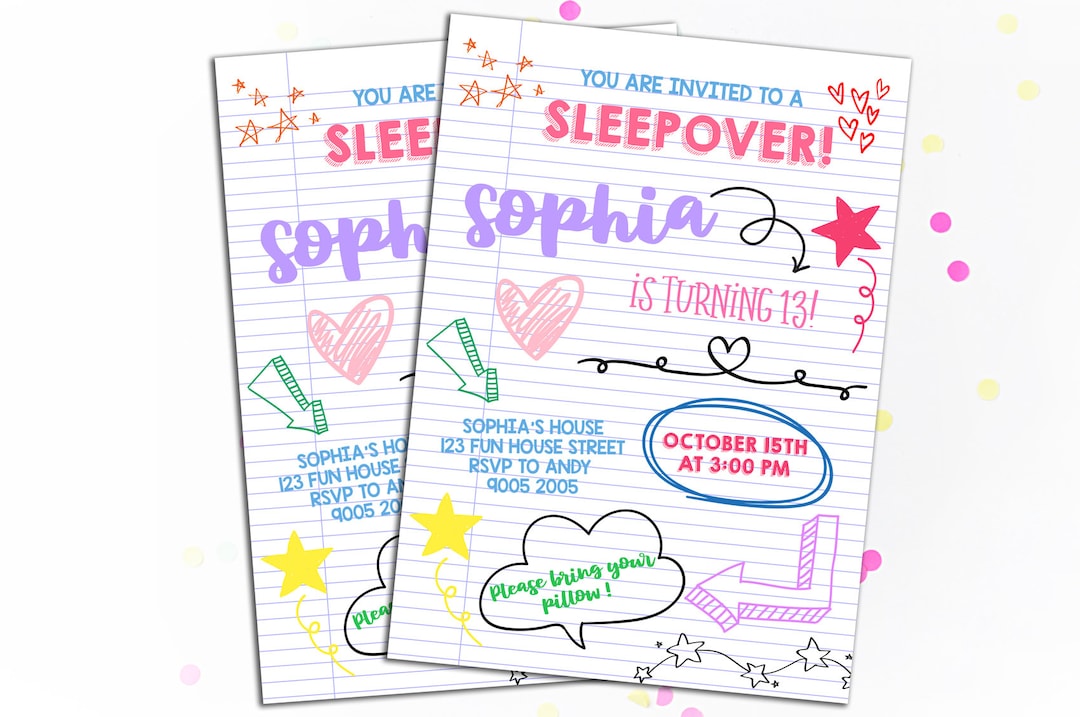 YOU ARE INVITED TO A
SLEEPOVER!
sophia
is TURNiNG 13!
SOPHIA'S HOUSE
123 FUN HOUSE STREET
RSVP TO ANDY
9005 2005
OCTOBER 15TH
AT 3:00 PM
Please bring your
pillow !
YOU ARE
SLEE
soph
SOPHIA'S HO
123 FUN HOUSE
RSVP TO AN
9005 20
Plea